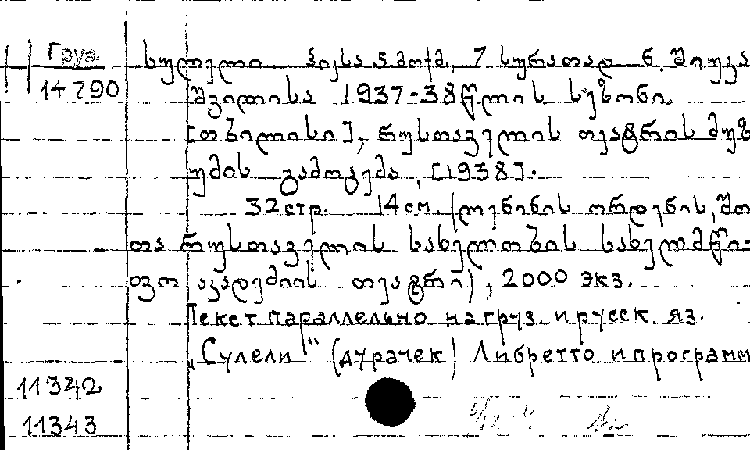 Груз.
14790
სულელი პიესა 5 მოქმ. 7 სურათად ნ. შიუკა
შვილისა 1937-38 წლის სეზონი.
[თბილისი], რუსთაველის თეატრის მუზ
უმის გამოცემა, [1938].
32 стр. 14 см. (ლენინის ორდენის, შო
თა რუსთაველის სახელობის სახელმწი-
ფო აკადემიის თეატრი), 2000 экз.
Текст параллельно на груз. и русск. яз.
„Сулели" (Дурачек) Либретто и программ
11342
11343